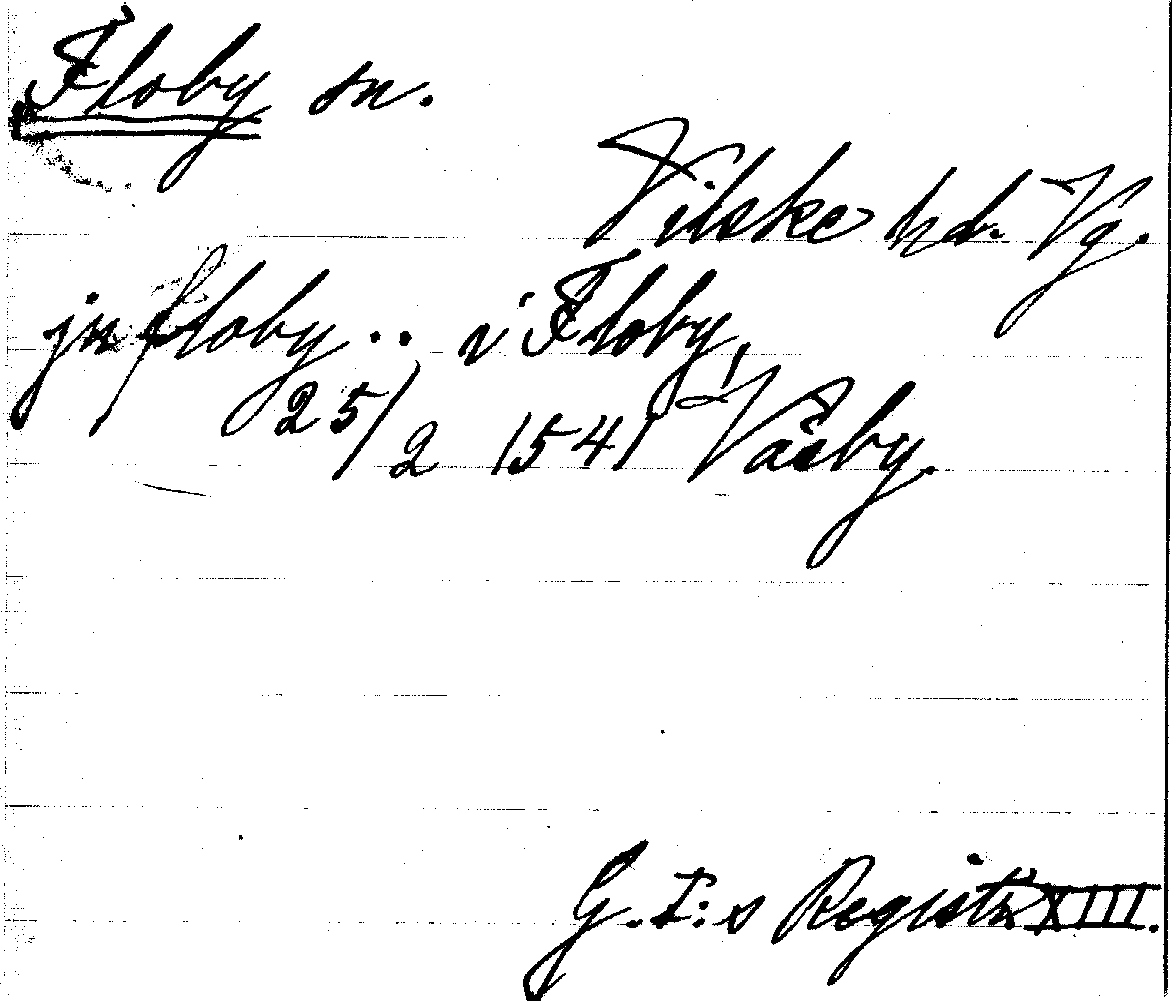 Floby sn.
Vilske hd. Vg.
jn floby .. i Floby,
25/2 1541 Våsby.
G. I:s Registr. XIII.